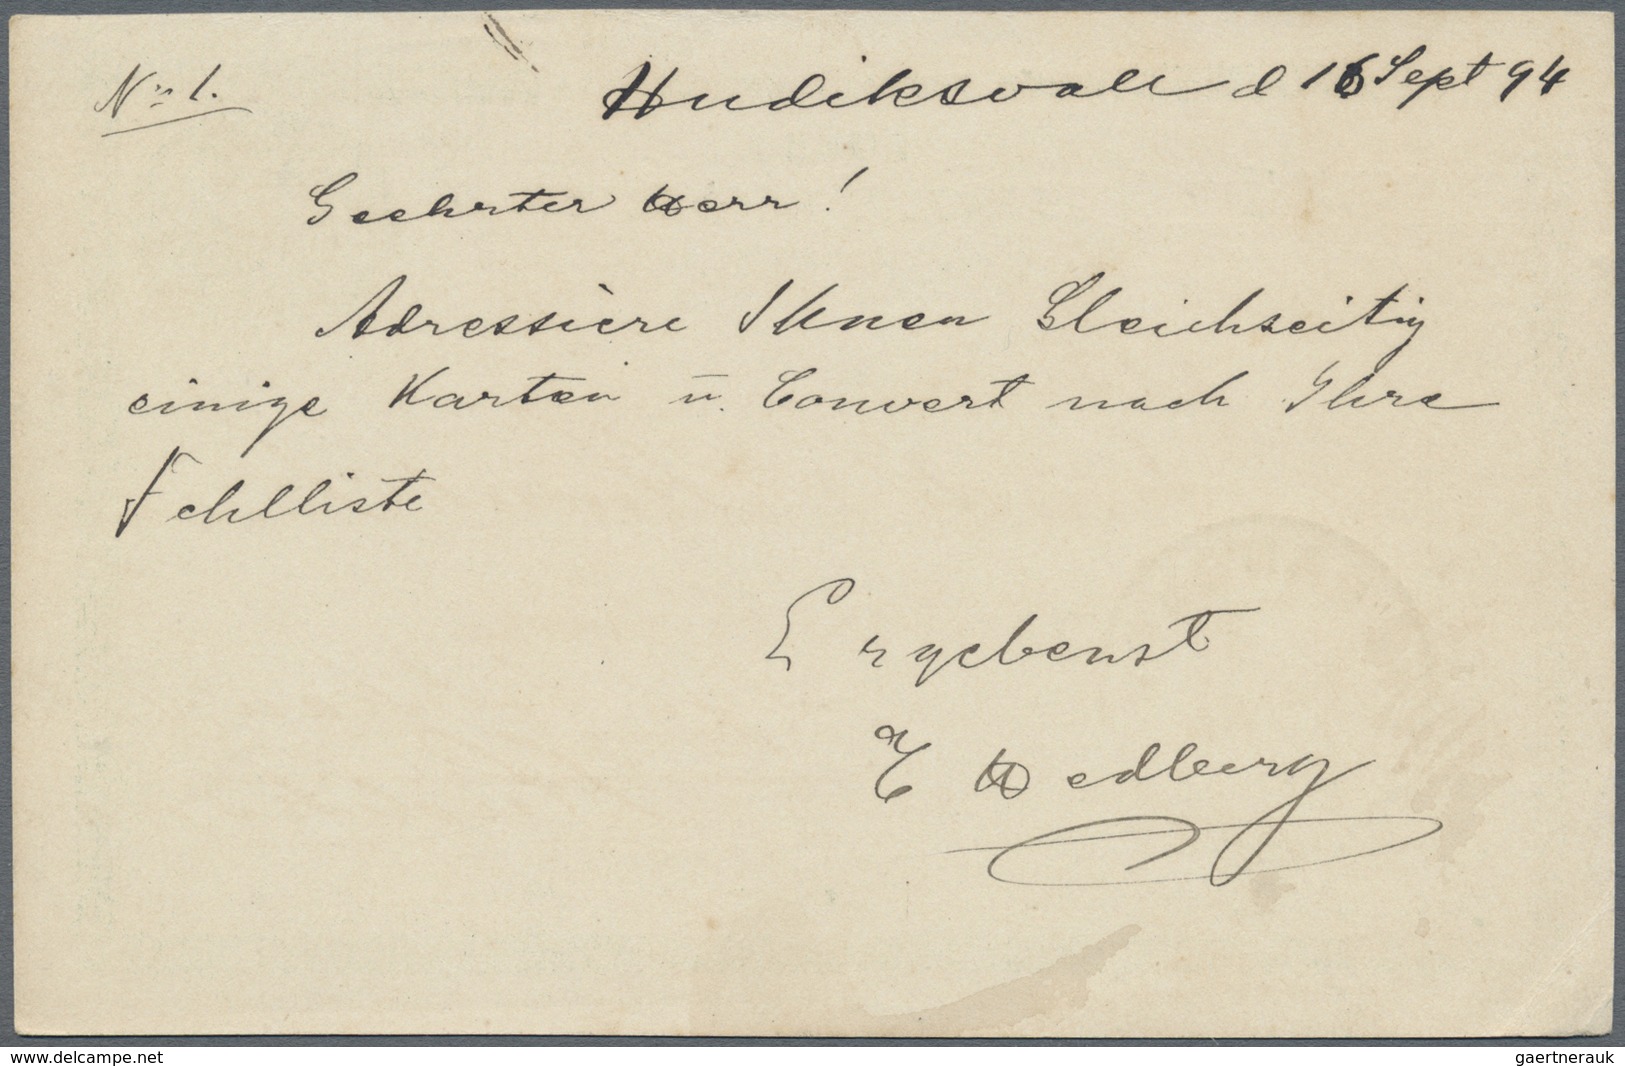 No 1.
Hudiksvall d 16 Sept 94
Geehrter Herr!
Adressière Ihnen Gleichzeitig
einige Karten u. Convert nach Ihre
Fehlliste
Ergebenst
E Hedberg
www.delcampe.net
gaertnerauk